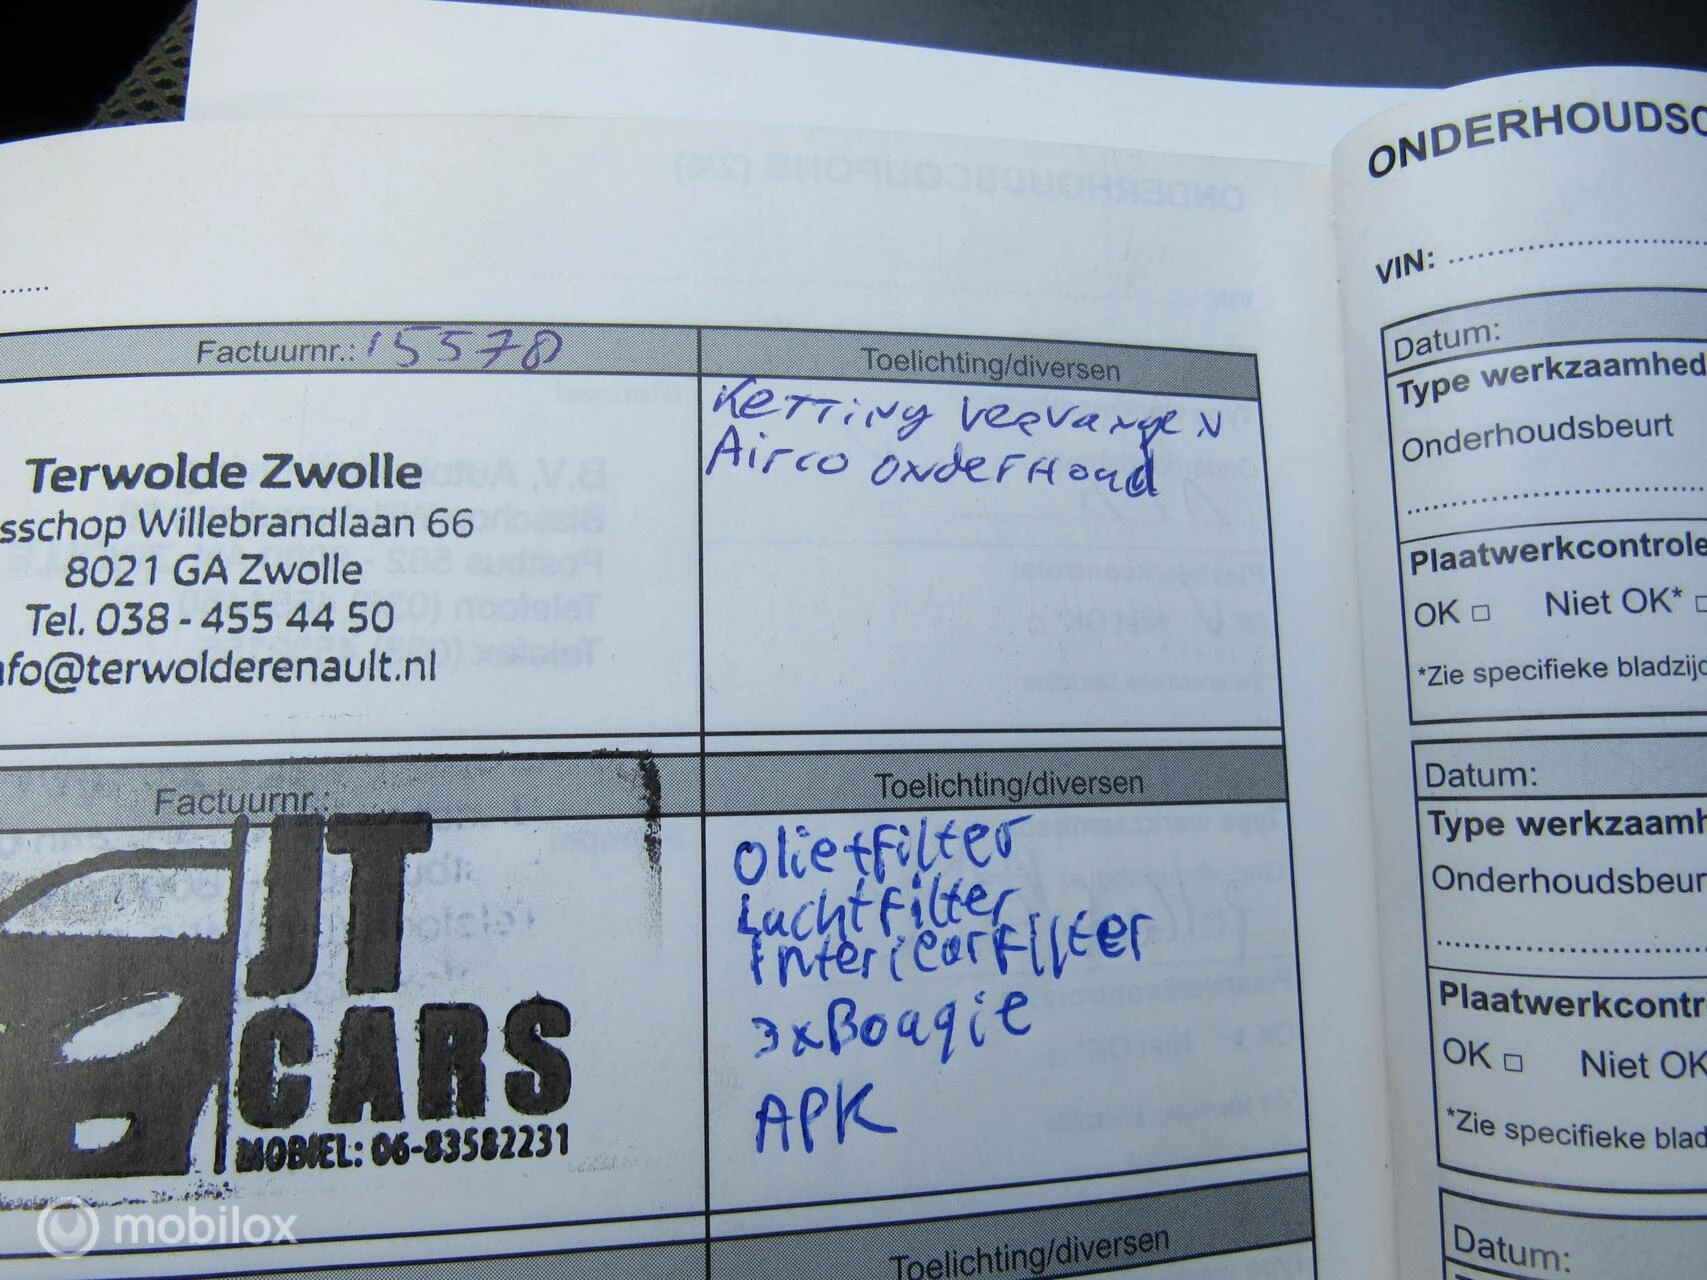 ONDERHOUDSCOUPONS (2/6)
Factuurnr.: 15578
Toelichting/diversen
Ketting vervangen
Airco onderhoud
Terwolde Zwolle
sschop Willebrandlaan 66
8021 GA Zwolle
Tel. 038 - 455 44 50
nfo@terwolderenault.nl
Factuurnr.:
Toelichting/diversen
JT
CARS
MOBIEL: 06-83582231
Oliefilter
Luchtfilter
Interieurfilter
3xBougie
APK
Toelichting/diversen
mobilox
ONDERHOUDSC
VIN:
Datum:
Type werkzaamhed
Onderhoudsbeurt
Plaatwerkcontrole
OK □ Niet OK* □
*Zie specifieke bladzijd
Datum:
Type werkzaamh
Onderhoudsbeur
Plaatwerkcontr
OK □ Niet OK
*Zie specifieke blad
Datum: